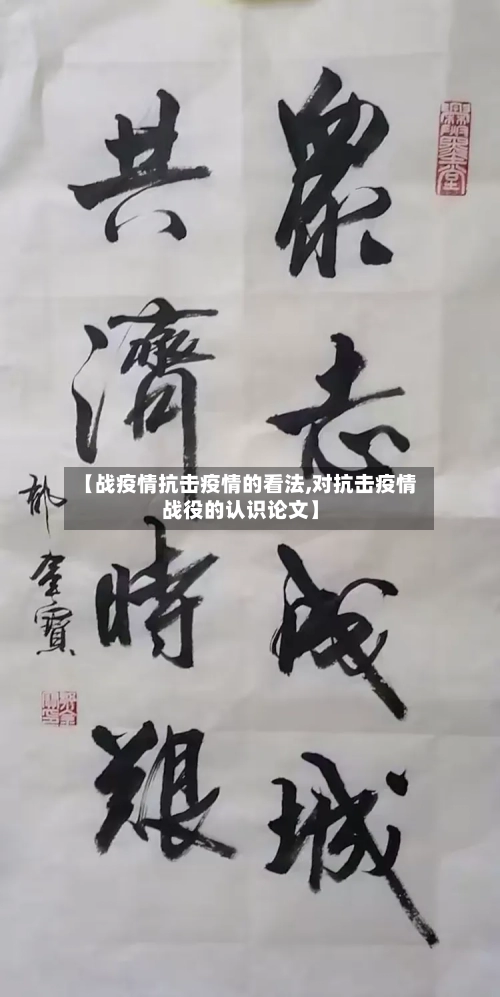 眾志成城
共濟時艱
【战疫情抗击疫情的看法,对抗击疫情
战役的认识论文】